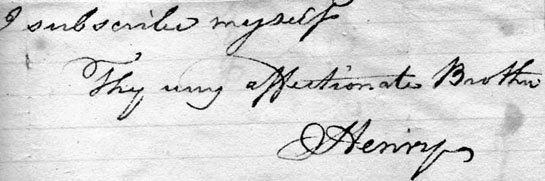 I subscribe myself
Thy very affectionate Brother
Henry